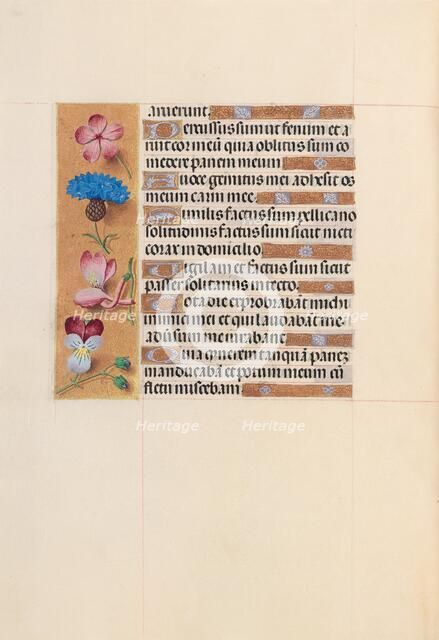 aruerunt.
Percussus sum ut fenum et a
ruit cor meū quia oblitus sum co
medere panem meum
A uoce gemitus mei adhesit os
meum carni mee.
Similis factus sum pellicano
solitudinis factus sum sicut nicti
corax in domicilio
Vigilaui et factus sum sicut
passer solitarius in tecto.
Tota die exprobrabāt michi
inimici mei et qui laudabāt me
aduersum me iurabant.
Quia cinerem tanquā panez
manducabā et potum meum cū
fletu miscebam.
Heritage
Heritage
Heritage
Heritage
Heritage
Heritage